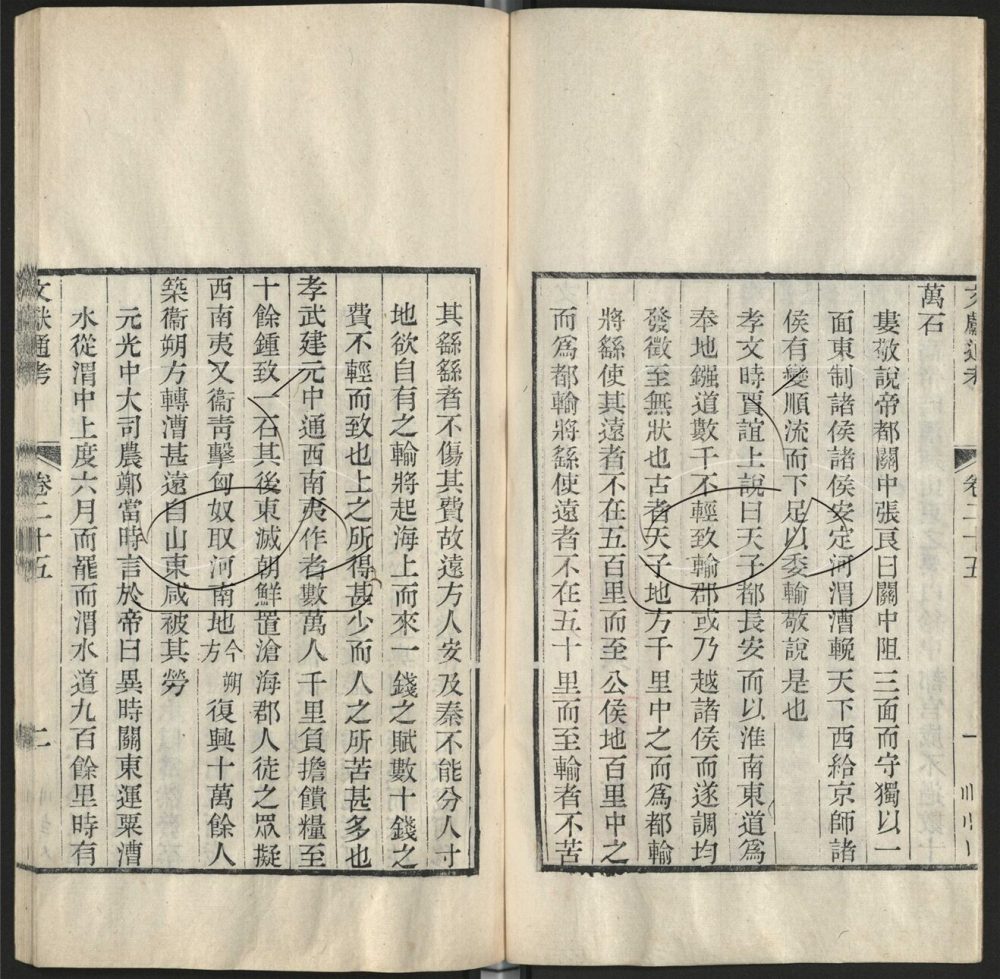 文獻通考 卷二十五 一
萬石
婁敬說帝都關中張良曰關中阻三面而守獨以一
面東制諸侯諸侯安定河渭漕輓天下西給京師諸
侯有變順流而下足以委輸敬說是也
孝文時賈誼上說曰天子都長安而以淮南東道爲
奉地鏹道數千不輕致輸郡或乃越諸侯而遂調均
發徵至無狀也古者天子地方千里中之而爲都輸
將繇使其遠者不在五百里而至公侯地百里中之
而爲都輸將繇使遠者不在五十里而至輸者不苦
其繇繇者不傷其費故遠方人安及秦不能分人寸
地欲自有之輸將起海上而來一錢之賦數十錢之
費不輕而致也上之所得甚少而人之所苦甚多也
孝武建元中通西南夷作者數萬人千里負擔饋糧至
十餘鍾致一石其後東滅朝鮮置滄海郡人徒之眾擬
西南夷又衞靑擊匈奴取河南地今朔方復興十萬餘人
築衞朔方轉漕甚遠自山東咸被其勞
元光中大司農鄭當時言於帝曰異時關東運粟漕
水從渭中上度六月而罷而渭水道九百餘里時有
文獻通考 卷二十五 二